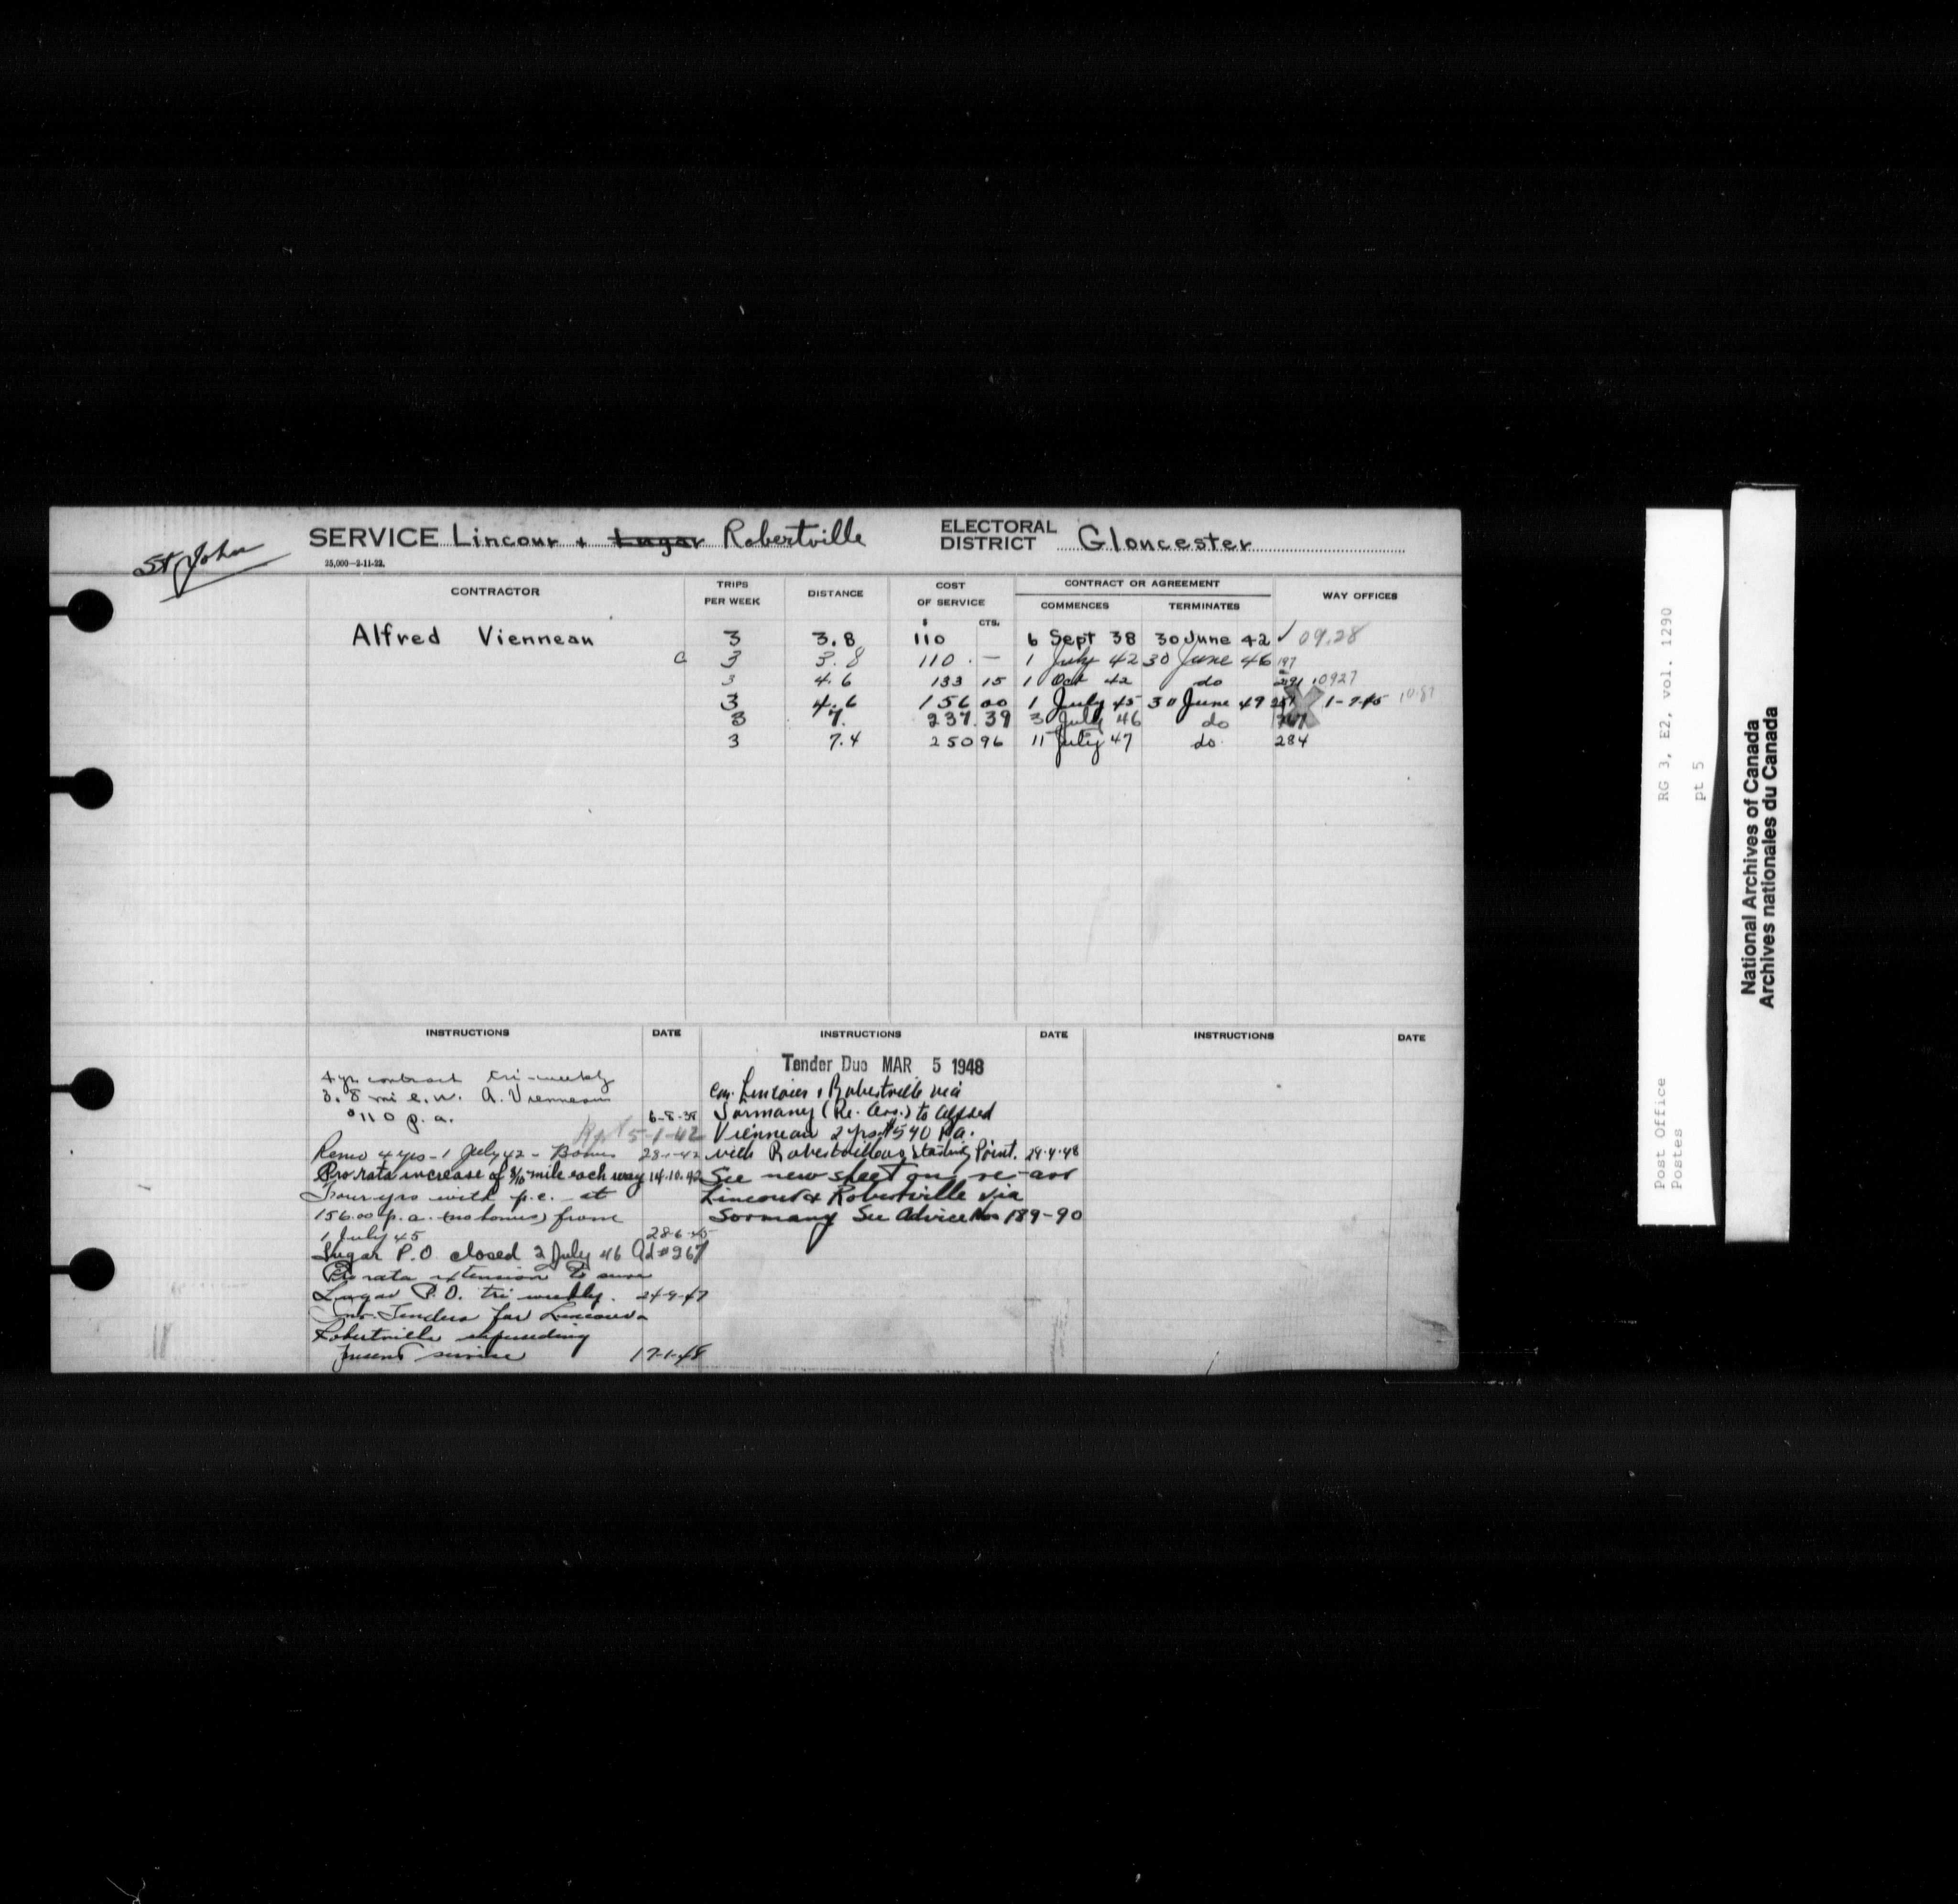 St John
SERVICE Lincour & Lugar Robertville
ELECTORAL DISTRICT Gloucester
25,000—2-11-22.
CONTRACTOR
TRIPS PER WEEK
DISTANCE
COST OF SERVICE
$ CTS.
CONTRACT OR AGREEMENT
COMMENCES TERMINATES
WAY OFFICES
Alfred Vienneau 3 3.8 110 6 Sept 38 30 June 42 ✓ 09.28
C 3 3.8 110. — 1 July 42 30 June 46 197
3 4.6 133 15 1 Oct 42 do 0927
3 4.6 156 00 1 July 45 30 June 49 1-7-45
3 7. 237. 39 3 July 46 do 267
3 7.4 250 96 11 July 47 do. 284
INSTRUCTIONS DATE INSTRUCTIONS DATE INSTRUCTIONS DATE
4 yr contract tri-weekly
3.8 mi e.w. A. Vienneau
$110 p.a. 6-8-38
Rpt 5-1-42
Renew 4 yrs - 1 July 42 - Bonus 28-1-42
Pro rata increase of 8/10 mile each way 14.10.42
Four yrs with p.c. at
156.00 p.a. (no bonus) from
1 July 45 28-6-45
Lugar P.O. closed 2 July 46 Ad # 267
Pro rata extension to serve
Lugar P.O. tri weekly. 24-9-47
Inv. Tenders for Lincour &
Robertville superseding
present service 17-1-48
Tender Due MAR 5 1948
Con. Lincour & Robertville via
Sormany (Re. Arr.) to Alfred
Vienneau 2 yrs. $540 P.a.
with Robertville as starting Point. 29-4-48
See new sheet on re-arr
Lincour & Robertville via
Sormany See Advice Nos 189-90
RG 3, E2, vol. 1290
pt 5
Post Office
Postes
National Archives of Canada
Archives nationales du Canada